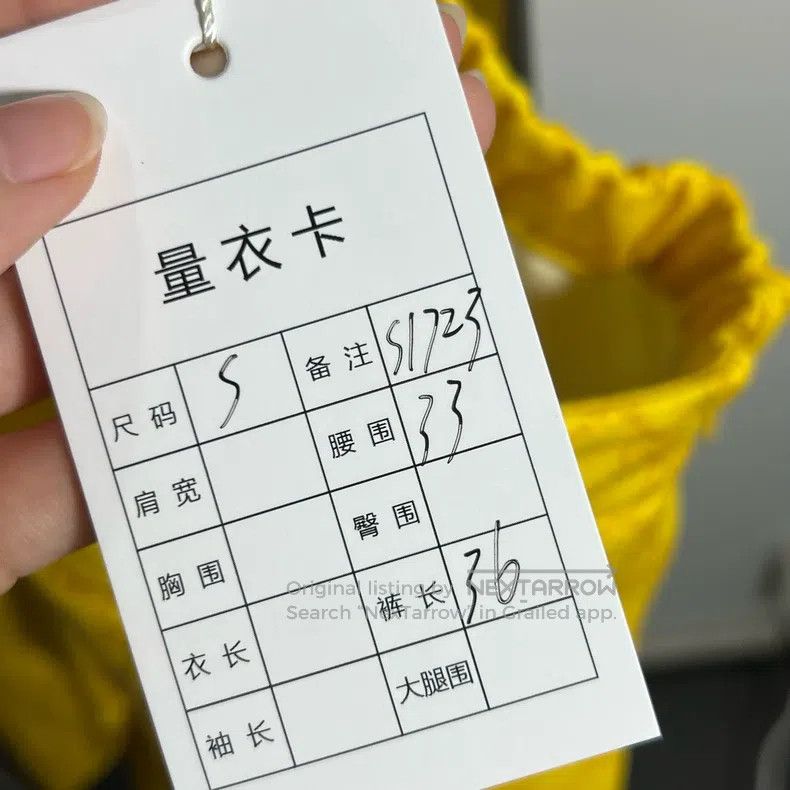 量衣卡
尺码 S 备注 S1723
肩宽 腰围 33
胸围 臀围
衣长 裤长 36
袖长 大腿围
Original listing by NEXTARROW
Search "NexTarrow" in Grailed app.